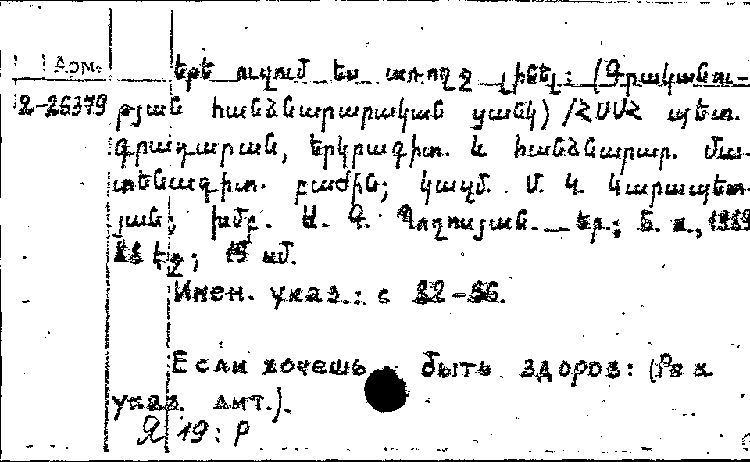 Арм.
2-26379
Եթե ուզում ես առողջ լինել: (Գրականու-
թյան հանձնարարական ցանկ) /ՀՍՍՀ պետ.
գրադարան, Երկրագիտ. և հանձնարար. մա-
տենագիտ. բաժին; կազմ. Մ. Կ. Կարապետ-
յան; խմբ. Ա. Գ. Պողոսյան.— Եր.; Բ. և., 1989
էջ; 15 սմ.
Имен. указ.: с 32-36.
Если хочешь быть здоров: (Рек
указ. лит.).
Я 19: Р